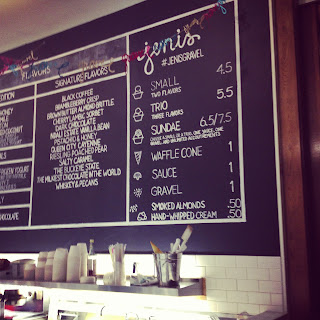 FLAVORS
SIGNATURE FLAVORS
BLACK COFFEE
BRAMBLEBERRY CRISP
BROWN BUTTER ALMOND BRITTLE
CHERRY LAMBIC SORBET
DARK CHOCOLATE
NDALI ESTATE VANILLA BEAN
PISTACHIO & HONEY
QUEEN CITY CAYENNE
RIESLING POACHED PEAR
SALTY CARAMEL
THE BUCKEYE STATE
THE MILKIEST CHOCOLATE IN THE WORLD
WHISKEY & PECANS
jenis
#JENISGRAVEL
SMALL 4.5
TWO FLAVORS
TRIO 5.5
THREE FLAVORS
SUNDAE 6.5/7.5
WAFFLE CONE 1
SAUCE 1
GRAVEL 1
SMOKED ALMONDS .50
HAND-WHIPPED CREAM .50